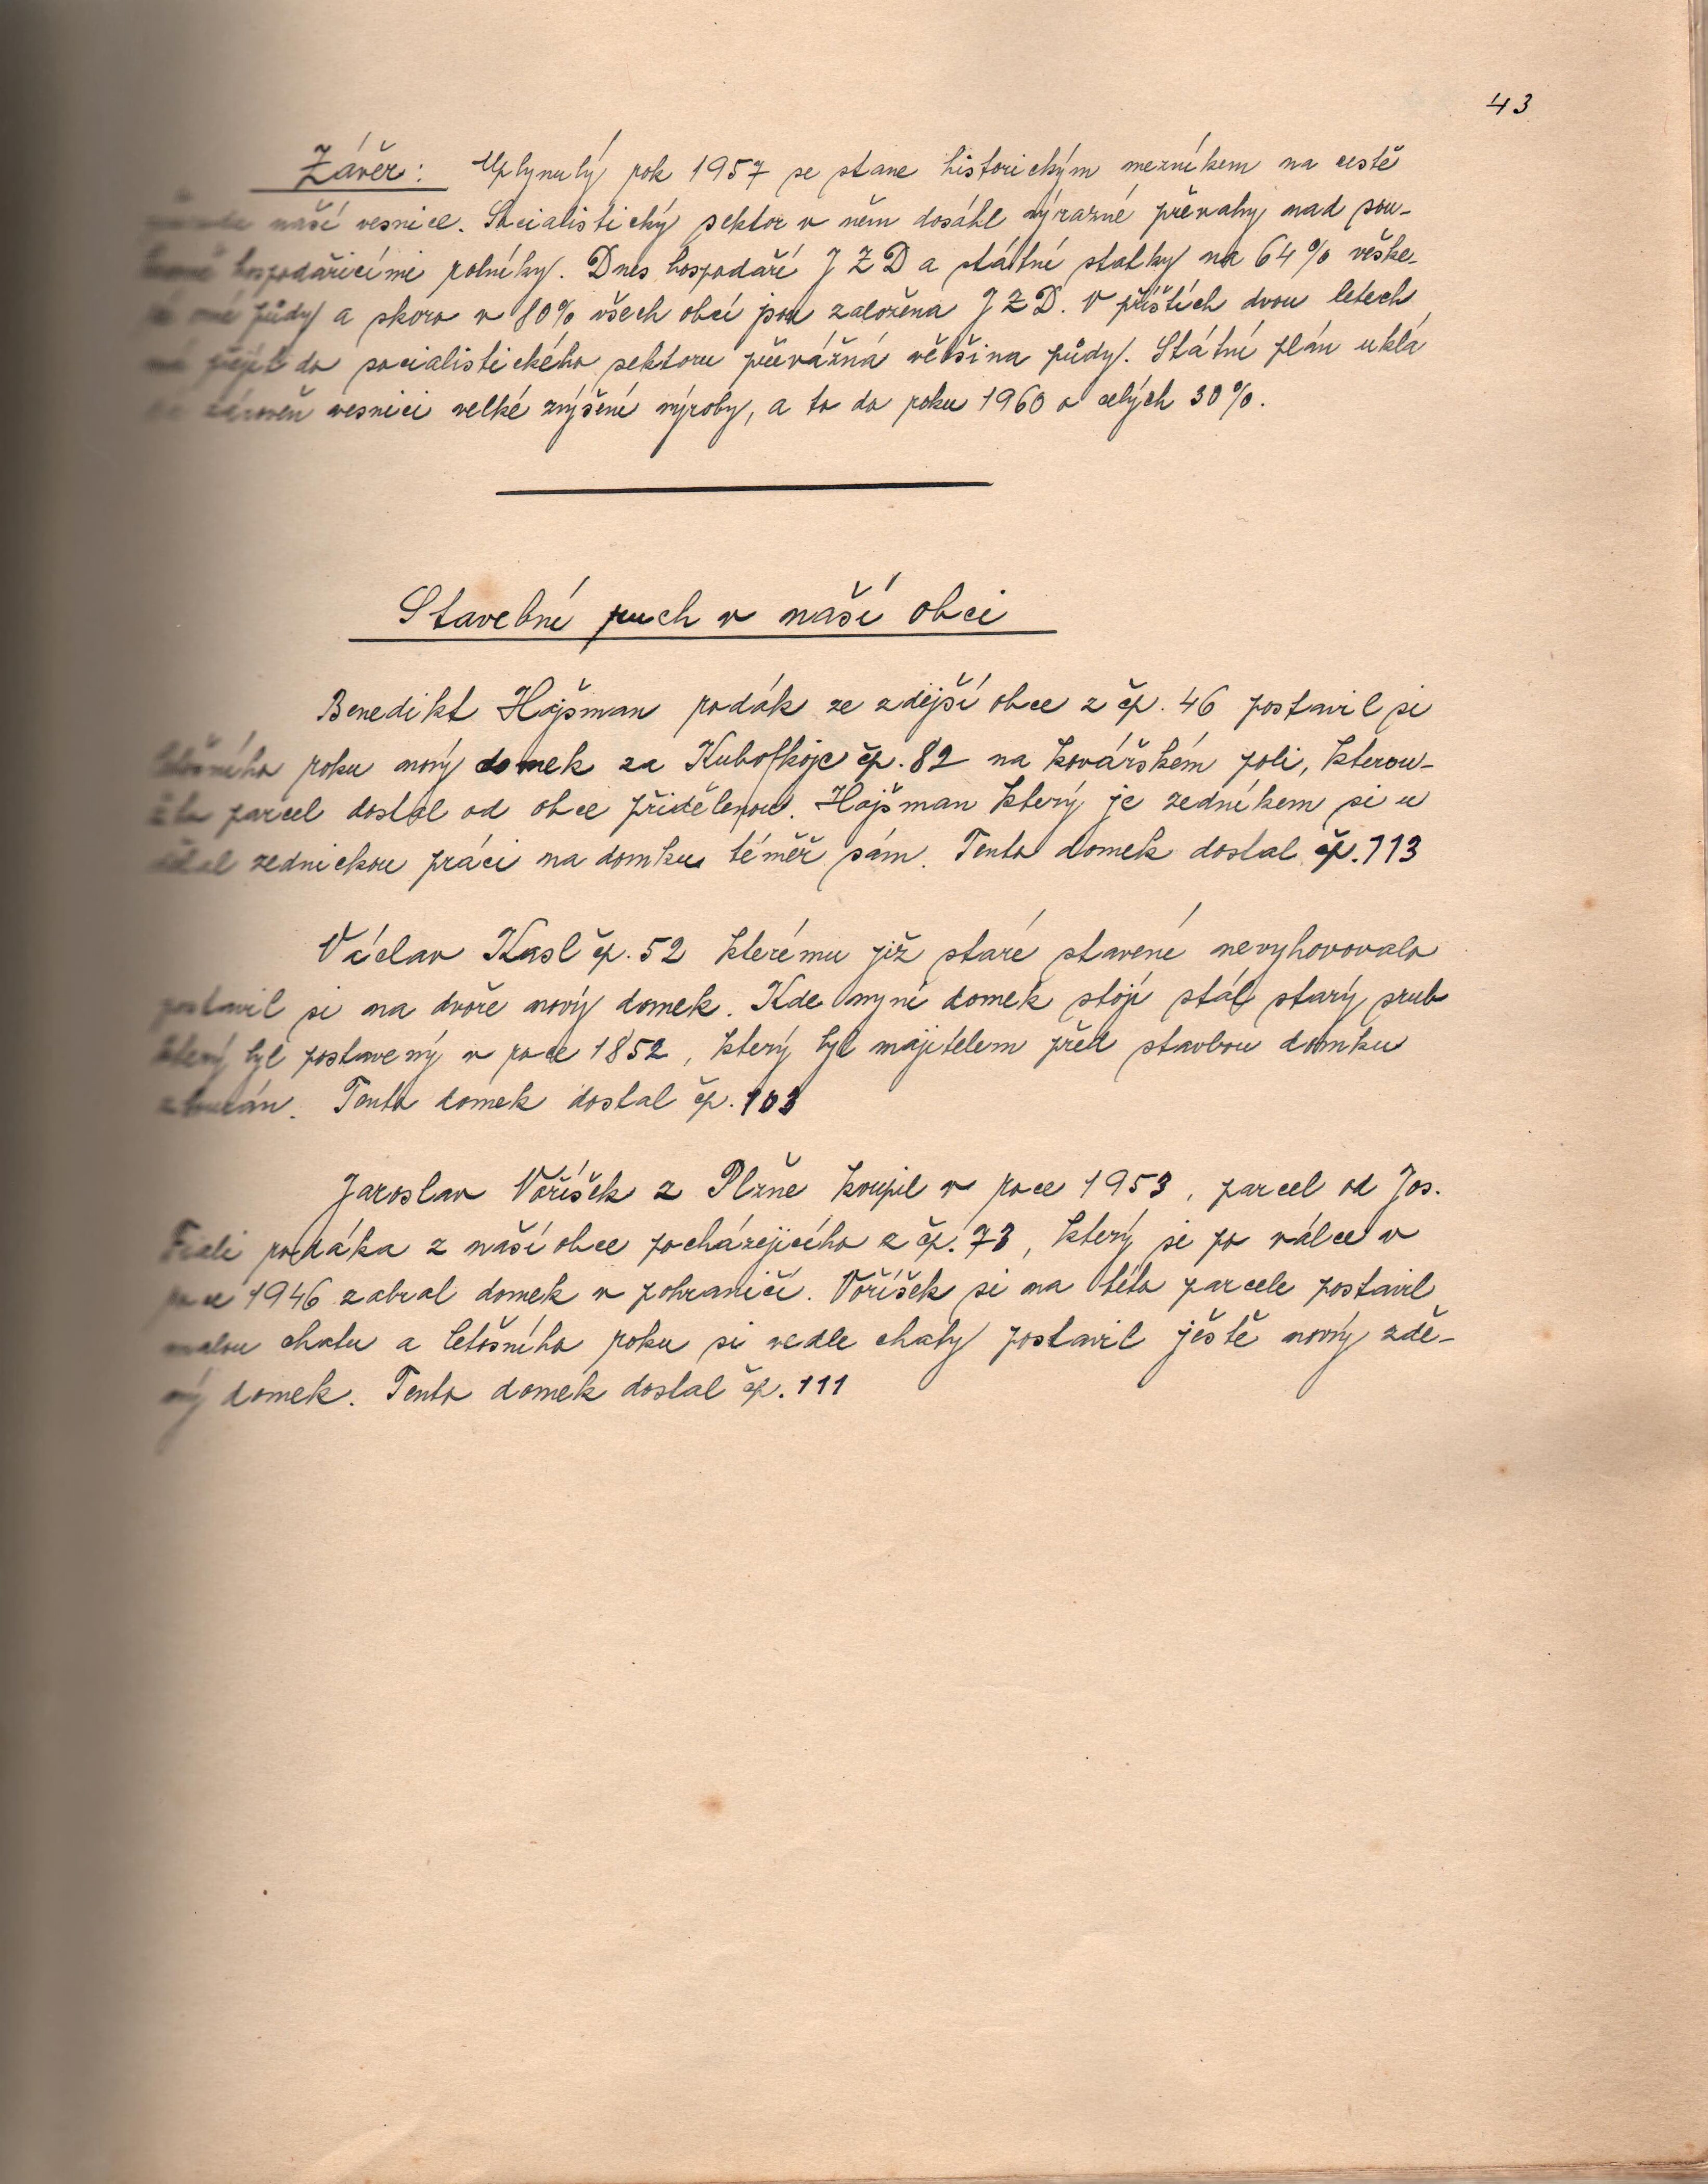 43
Závěr: Uplynulý rok 1957 se stane historickým mezníkem na cestě
naší vesnice. Socialistický sektor v něm dosáhl výrazné převahy nad sou-
kromě hospodařícími rolníky. Dnes hospodaří JZD a státní statky na 64% veške-
ré orné půdy a skoro v 80% všech obcí jsou založena JZD. V příštích dvou letech
má přejít do socialistického sektoru převážná většina půdy. Státní plán uklá
dá zároveň vesnici velké zvýšení výroby, a to do roku 1960 o celých 30%.
Stavební ruch v naší obci
Benedikt Hojšman rodák ze zdejší obce z čp. 46 postavil si
letošního roku nový domek za Kubofkojc čp. 82 na kovářském poli, kterou-
žto parcel dostal od obce přidělenou. Hojšman který je zedníkem si u
dělal zednickou práci na domku téměř sám. Tento domek dostal čp. 113
Václav Kasl čp. 52 kterému již staré stavené nevyhovovalo
postavil si na dvoře nový domek. Kde nyní domek stojí stál starý srub
který byl postavený v roce 1852, který byl majitelem před stavbou domku
zbourán. Tento domek dostal čp. 103
Jaroslav Voříšek z Plzně koupil v roce 1953, parcel od Jos.
Fiali rodáka z naší obce pocházejícího z čp. 73, který si po válce v
roce 1946 zabral domek v pohraničí. Voříšek si na této parcele postavil
malou chatu a letošního roku si vedle chaty postavil ještě nový zdě-
ný domek. Tento domek dostal čp. 111